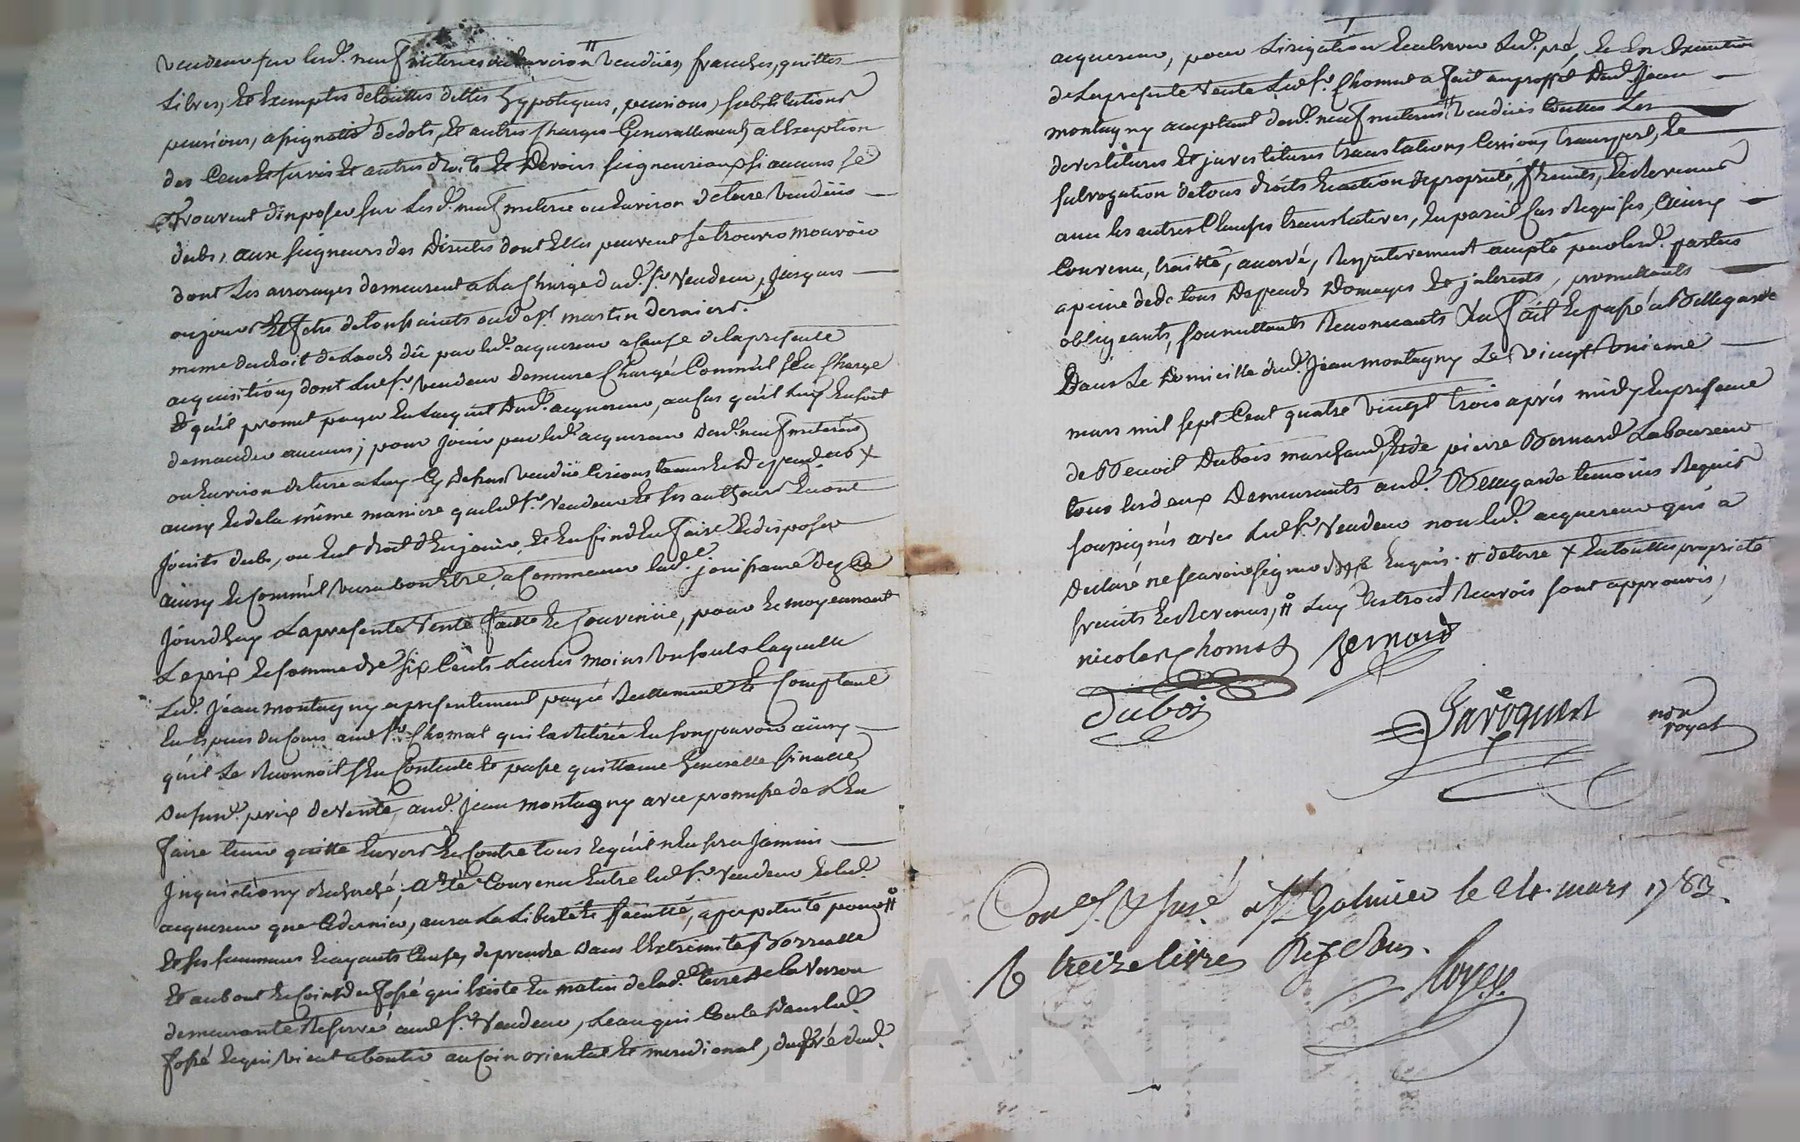 vendeur sur lesd. neuf meterées ou environ # vendües, franches, quittes
Libres, Et Exemptes de touttes dettes hypoteques, pensions, substitutions
pensions, assignation de dots, Et autres charges Generallement, a lExeption
des Cens Et servis Et autres droits Et Devoirs seigneuriaux si aucuns se
trouvent dimposés sur Lesd. neuf meterée ou Environ de terre vendües
dubs, aux seigneurs des Directes dont Elles peuvent se trouver mouvoir
dont Les arrerages demeurent a La Charge dud. sr. Vendeur, jusques
aujour Et fete de toussaints ou de st. martin dernier.
meme du droit de Laods dû par led. acquereur a cause de la presente
acquisition dont Led. sr. Vendeur demeure Chargé Comme il sen Charge
Et quil promet payer En Lacquit dud. acquereur, au cas quil Luy En soit
demandé aucuns; pour jouir par led. acquereur desd. neuf meterées
ou Environ de terre a Luy Cy Dessus vendüe Circonstances Et dependances X
ainsy Et de la même maniere que led. sr. Vendeur Et ses autheurs En ont
jouits dubs, ou Eut droit dEn jouir, Et En fin dEn faire Et disposer
ainsy Et Comme il verra bon Etre, a Commencer lad. jouissance dez Ce
jourdhuy La presente Vente faitte Et Convenüe, pour Et moyennant
Le prix Et somme de six Cents Livres moins un sous laquelle
Led. jean montagny a presentement payée reellement Et Comptant
En Especes du Cours aud. sr. Chomat qui la retirée En son pouvoir ainsy
quil Le Reconnoit sen Contente Et passe quittance Generalle finalle
Dususd. prix de Vente, aud. jean montagny avec promesse de Len
faire tenir quitte Envers Et Contre tous Et quil nEn sera jamais
inquieté ny Recherché; a Eté Convenu Entre led. sr. Vendeur Et led.
acquereur que Ce dernier, aura La Liberté Et faculté, a perpetuité pour #
Et ses successeurs Et ayants Cause, de prendre Dans lExtremité Borrealle
Et au bout Et Coin du fossé qui Existe En matin de lad. terre de la Verson
demeurante Reservée aud. sr. Vendeur, Leau qui Coule Dans led.
fossé Et qui vient aboutir au Coin oriental Et meridional, du pré dud.
acquereur, pour Lirigation Et abreuver Led. pré, Et En Execution
de La presente Vente Led. sr. Chomat a fait au proffit Dud. Jean
montagny acceptant desd. neuf meterées # vendües touttes Les
devestitures Et jnvestitures translations Cessions transport, Et
subrogation de tous droits Et action de proprieté, fruits, Et Revenus
avec les autres Clauses translatives, En pareil Cas Requises, Cainsy
Convenu, traitté, accordé, Respectivement accepté par lesd. parties
a peine de de tous Depends Domages Et jnterests, promettants
obligeants, soumettants Renoncants &a fait Et passé a Bellegarde
Dans Le Domicille dud. Jean montagny Le vingt unieme
mars mil sept Cent quatre vingt trois aprés midy En presence
de Benoit Dubois marchand, Et de pierre Bernard Laboureur
tous les deux Demeurants aud. Bellegarde temoins Requis
soussignés avec Led. sr. Vendeur non led. acquereur qui a
Declaré ne scavoir signer de ce Enquis. # de terre X En toutte proprieté
fruits Et Revenus, # Luy Les trois Renvois sont approuvés,
nicolas Chomat Bernard
dubois
Garoquest not royal
Con[trol]é & jnsé. a St. Galmier le 24. mars 1783.
R treize livres dix sous.
Royet
CHAREYRON